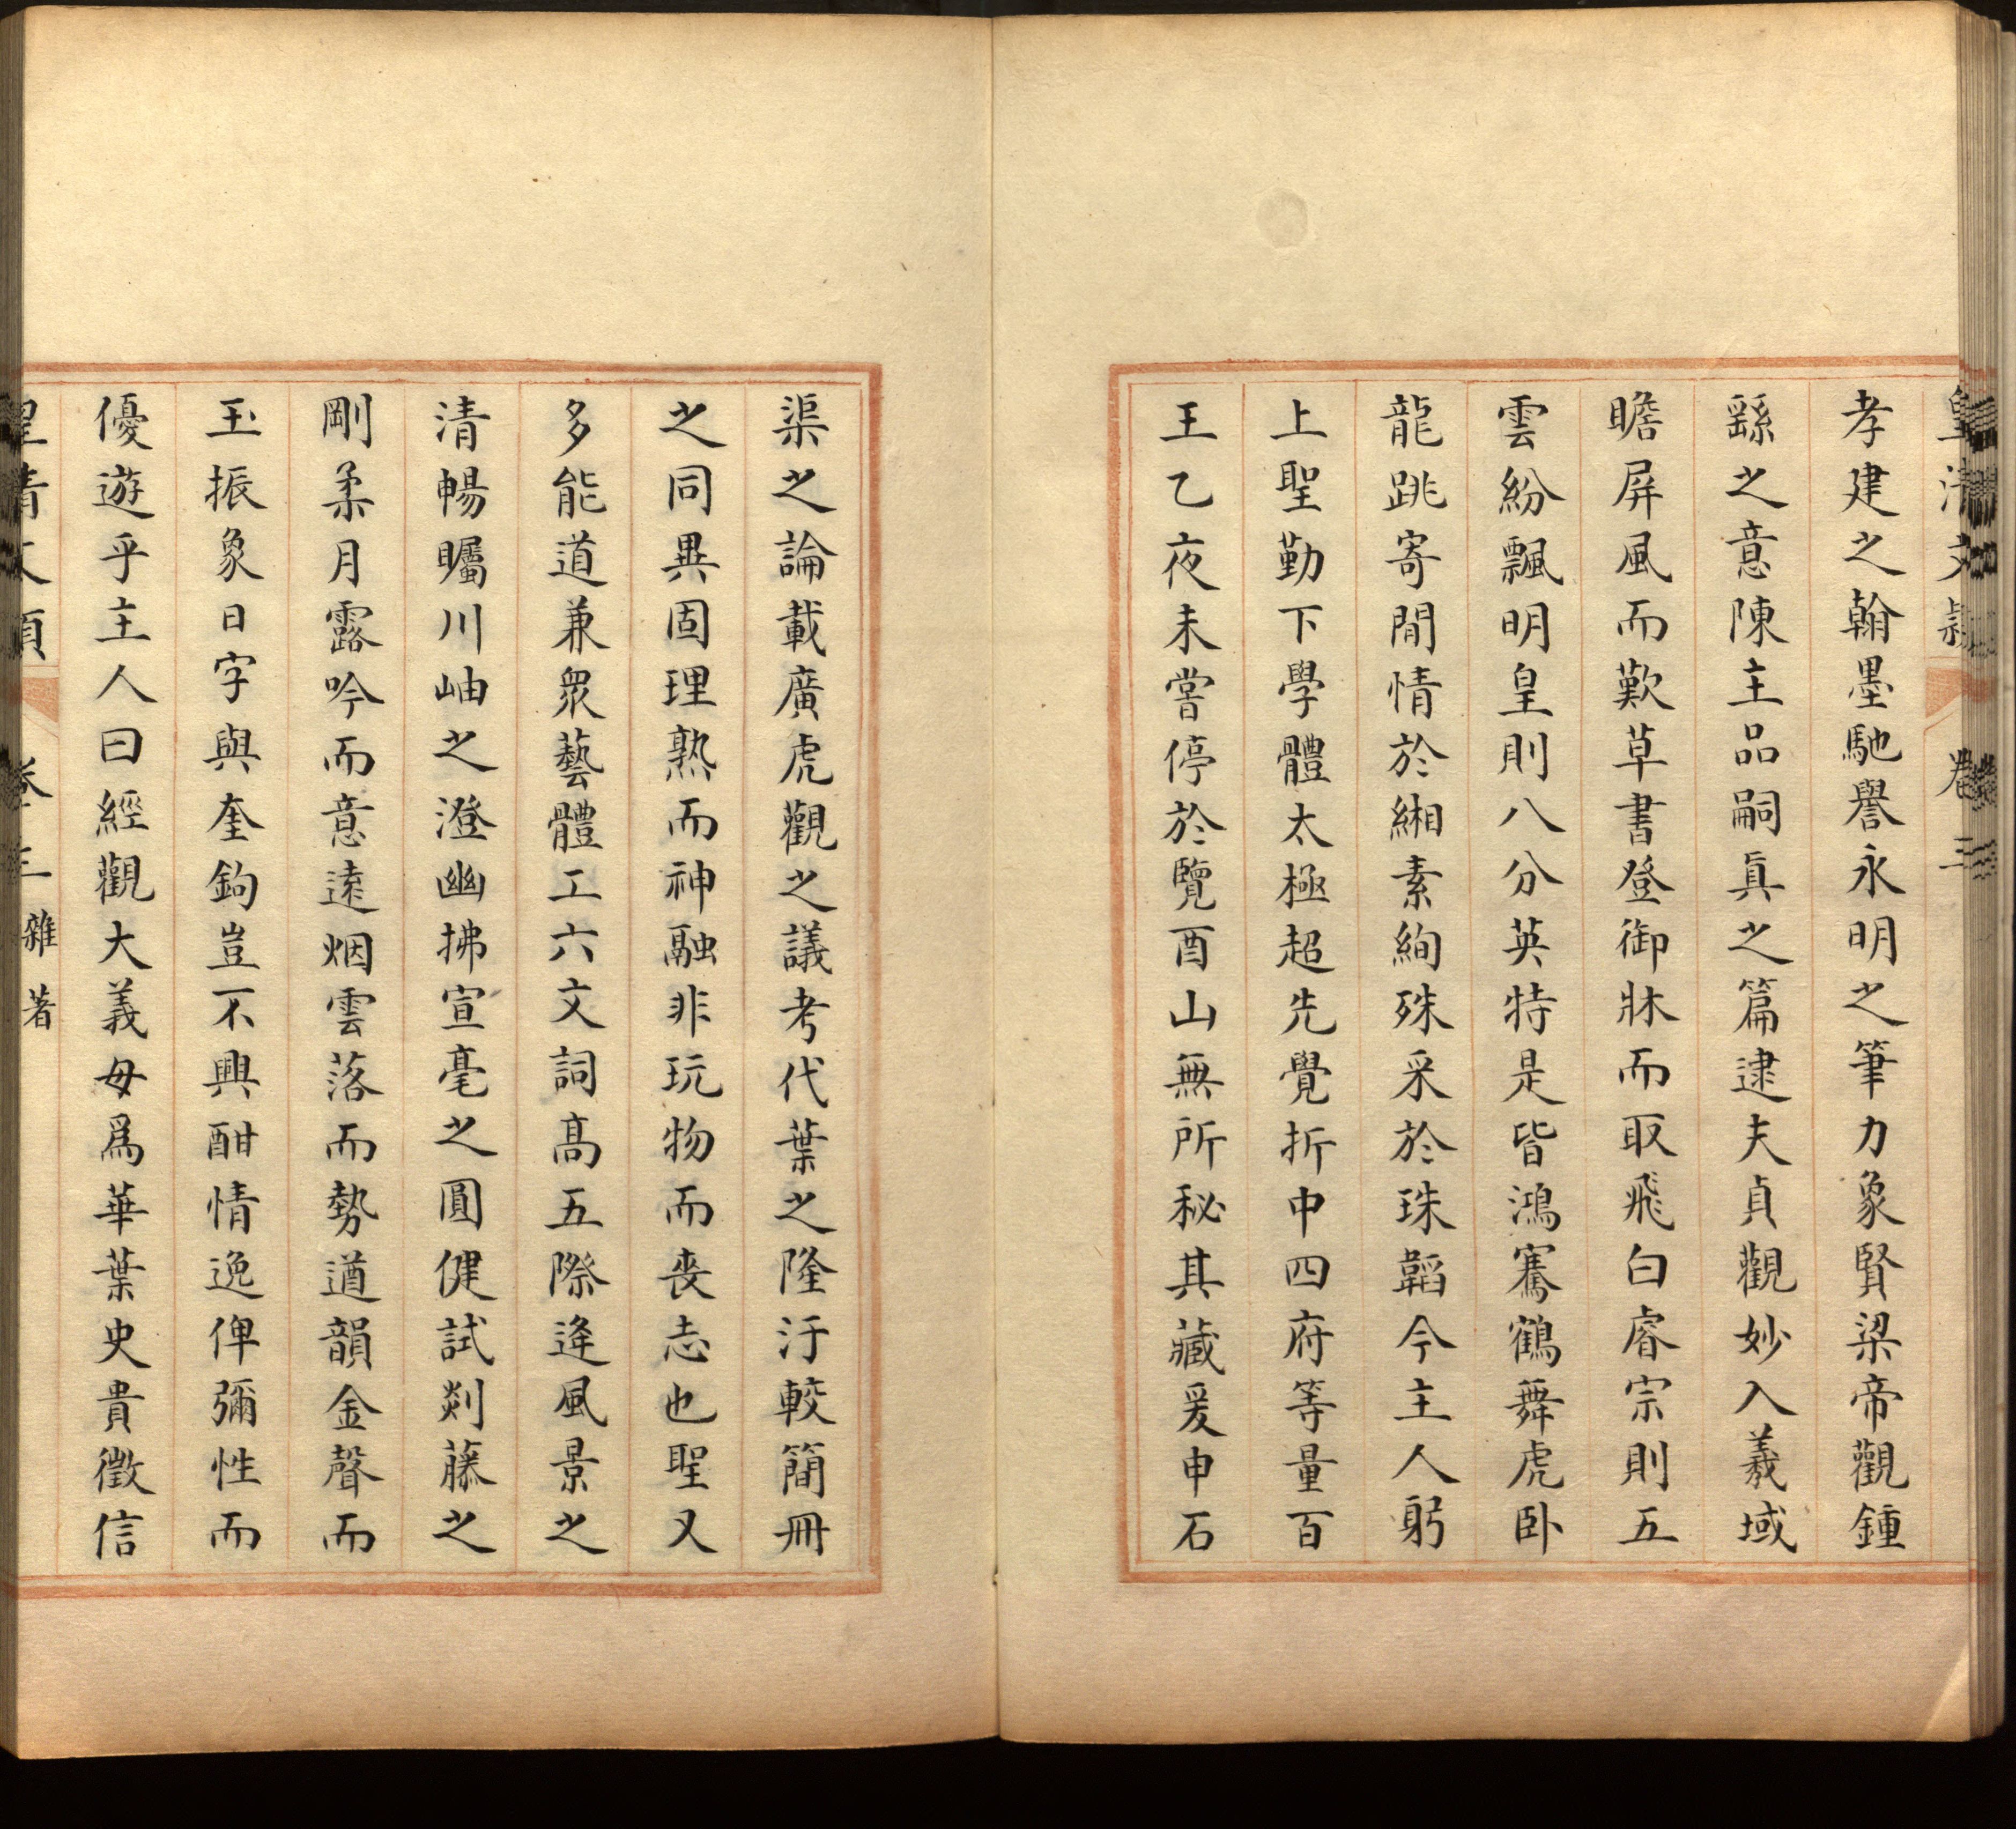 皇清文穎 卷三
孝建之翰墨馳譽永明之筆力象賢梁帝觀鍾
繇之意陳主品嗣眞之篇逮夫貞觀妙入羲域
瞻屏風而歎草書登御牀而取飛白睿宗則五
雲紛飄明皇則八分英特是皆鴻騫鶴舞虎卧
龍跳寄閒情於緗素絢殊采於珠韜今主人躬
上聖勤下學體太極超先覺折中四府等量百
王乙夜未嘗停於覽酉山無所秘其藏爰申石
渠之論載廣虎觀之議考代葉之隆汙較簡冊
之同異固理熟而神融非玩物而喪志也聖又
多能道兼衆藝體工六文詞高五際逄風景之
清暢矚川岫之澄幽拂宣毫之圓健試剡藤之
剛柔月露吟而意遠烟雲落而勢遒韻金聲而
玉振象日字與奎鉤豈不興酣情逸俾彌性而
優遊乎主人曰經觀大義毋爲華葉史貴徵信
皇清文穎 卷三 雜著